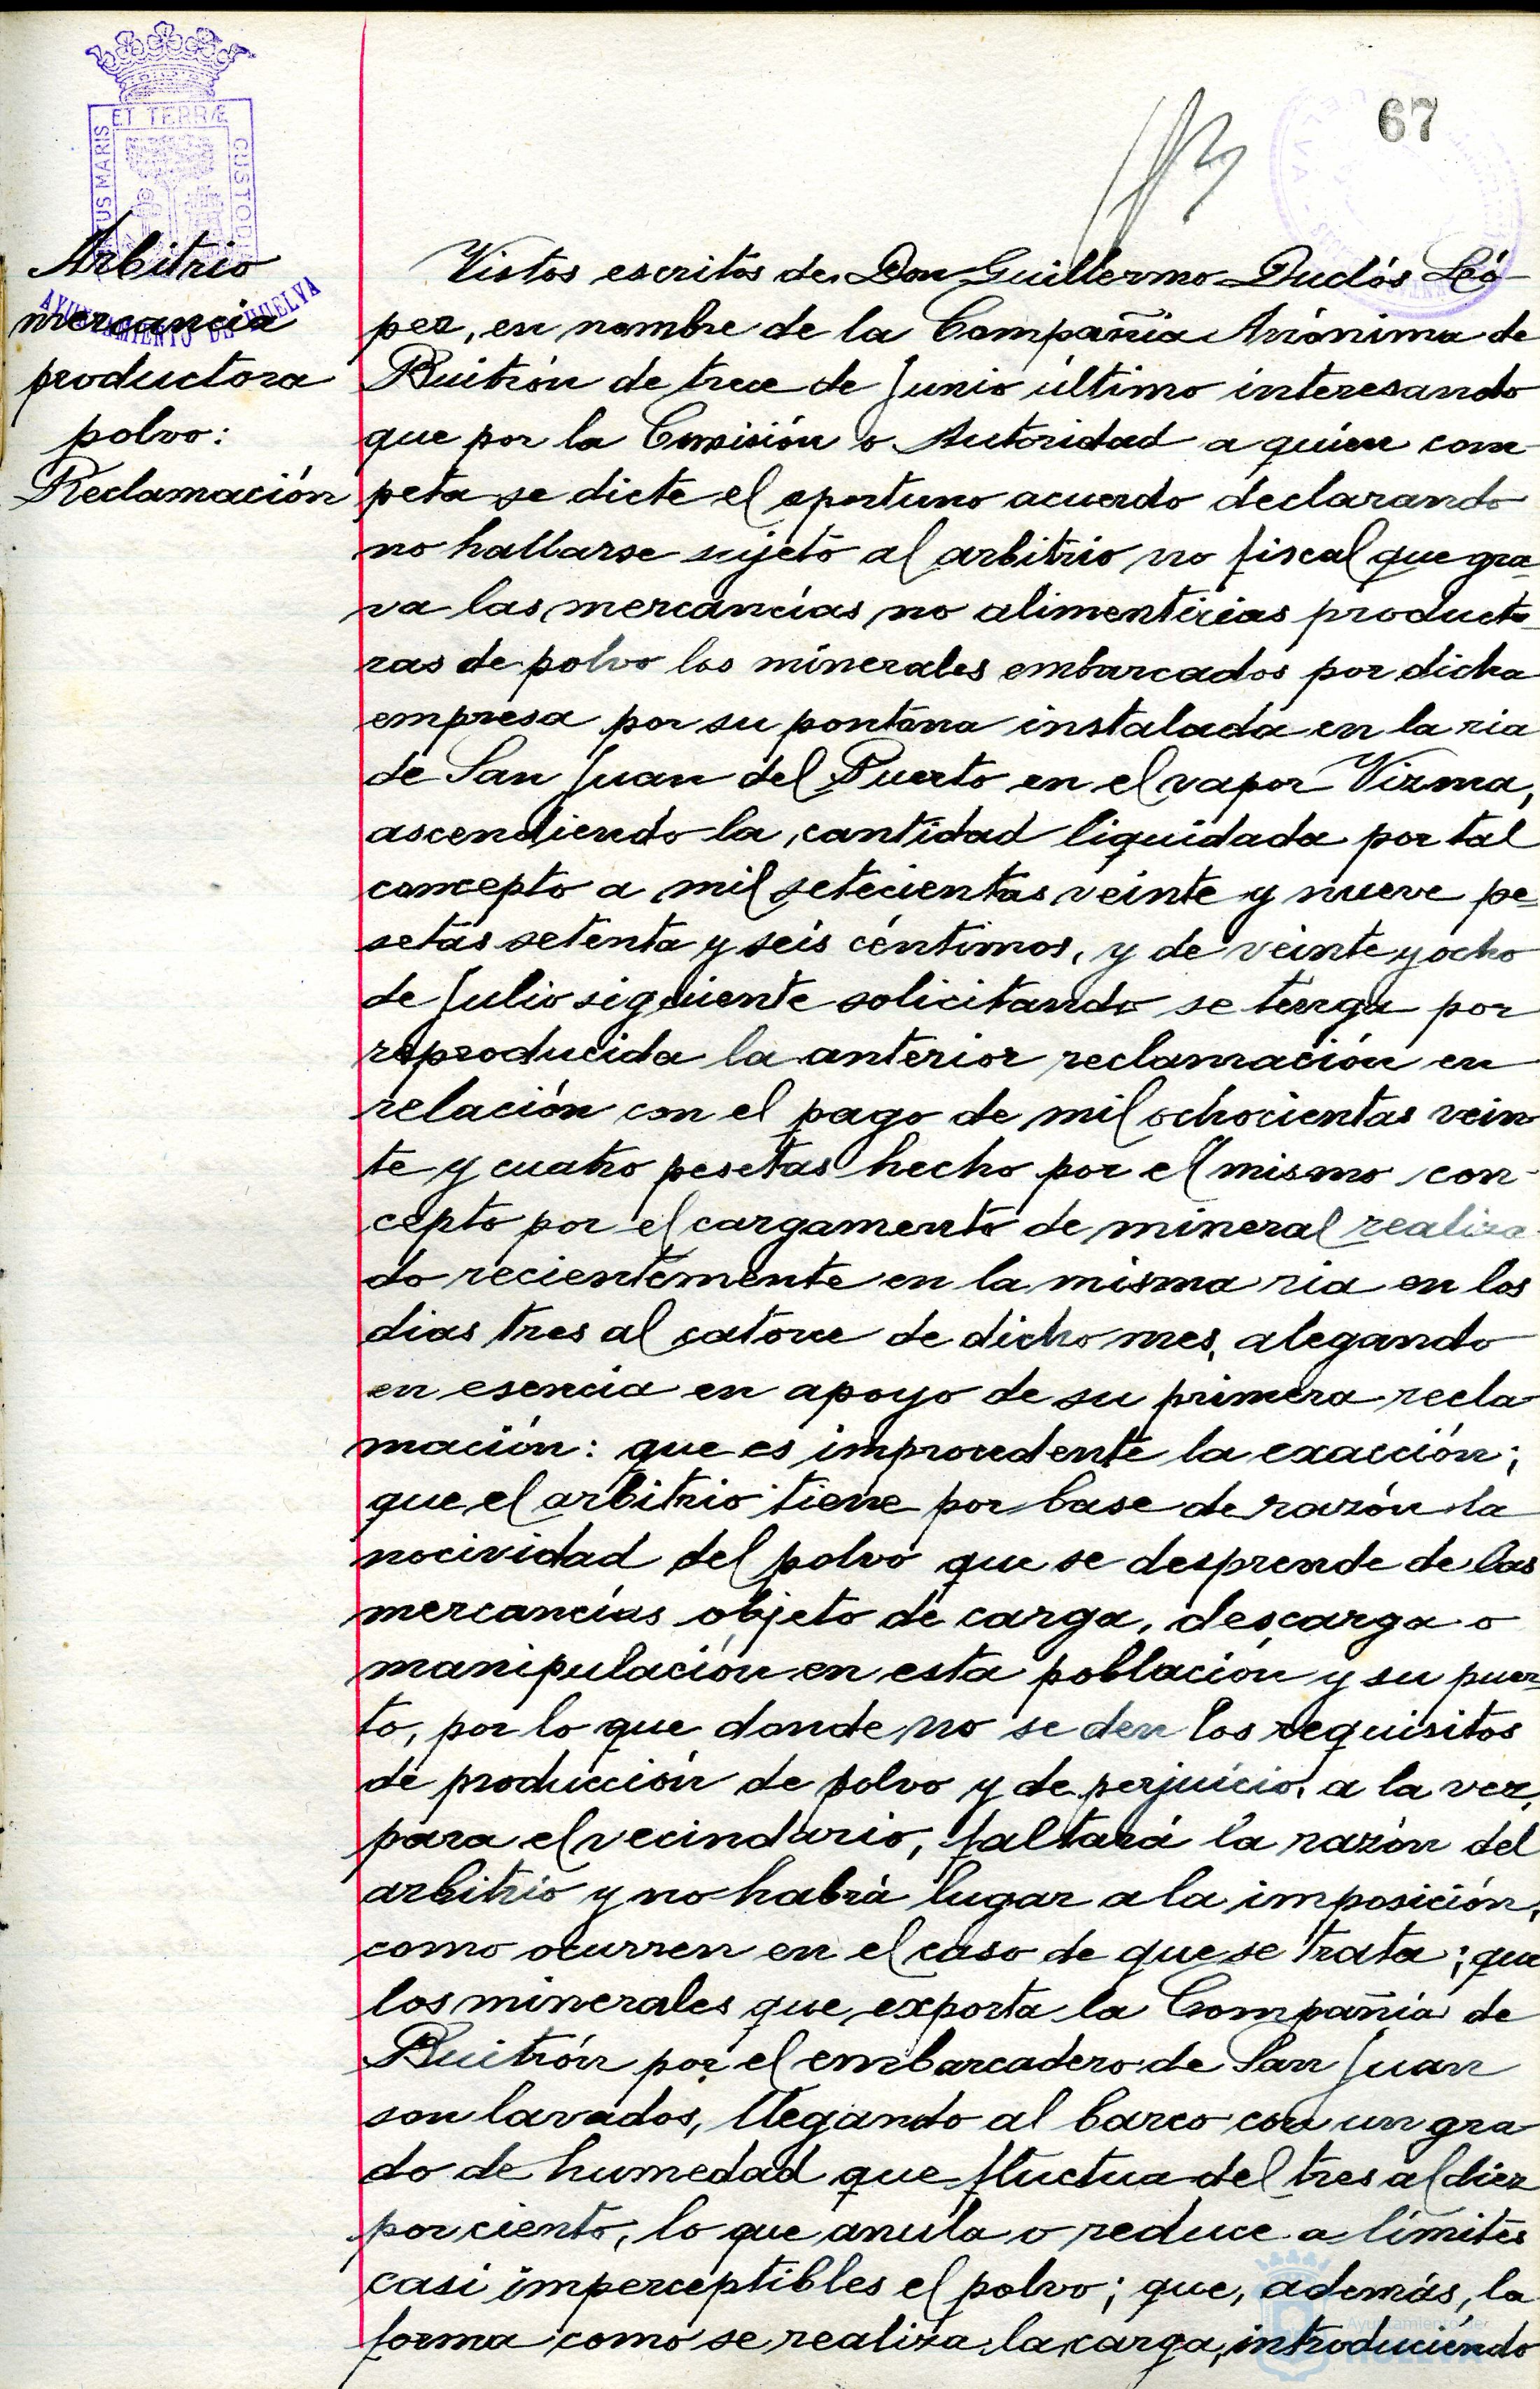 67
ET TERRÆ
PORTUS MARIS
CUSTODIA
AYUNTAMIENTO DE HUELVA
Arbitrio
mercancia
productora
polvo:
Reclamación
Vistos escritos de Don Guillermo Duclós Ló-
pez, en nombre de la Compañía Anónima de
Buitrón de trece de Junio último interesando
que por la Comisión o Autoridad a quien com-
peta se dicte el oportuno acuerdo declarando
no hallarse sujeto al arbitrio no fiscal que gra-
va las mercancías no alimenticias producto-
ras de polvo los minerales embarcados por dicha
empresa por su pontona instalada en la ria
de San Juan del Puerto en el vapor Virma,
ascendiendo la cantidad liquidada por tal
concepto a mil setecientas veinte y nueve pe-
setas setenta y seis céntimos, y de veinte y ocho
de Julio siguiente solicitando se tenga por
reproducida la anterior reclamación en
relación con el pago de mil ochocientas vein
te y cuatro pesetas hecho por el mismo con-
cepto por el cargamento de mineral realiza-
do recientemente en la misma ria en los
dias tres al catorce de dicho mes, alegando
en esencia en apoyo de su primera recla-
mación: que es improcedente la exacción;
que el arbitrio tiene por base de razón la
nocividad del polvo que se desprende de las
mercancías objeto de carga, descarga o
manipulación en esta población y su puer-
to, por lo que donde no se den los requisitos
de producción de polvo y de perjuicio, a la vez,
para el vecindario, faltará la razón del
arbitrio y no habrá lugar a la imposición,
como ocurren en el caso de que se trata; que
los minerales que exporta la Compañía de
Buitrón por el embarcadero de San Juan
son lavados, llegando al barco con un gra
do de humedad que fluctua del tres al diez
por ciento, lo que anula o reduce a límites
casi imperceptibles el polvo; que, además, la
forma como se realiza la carga, introduciendo
Ayuntamiento de
HUELVA